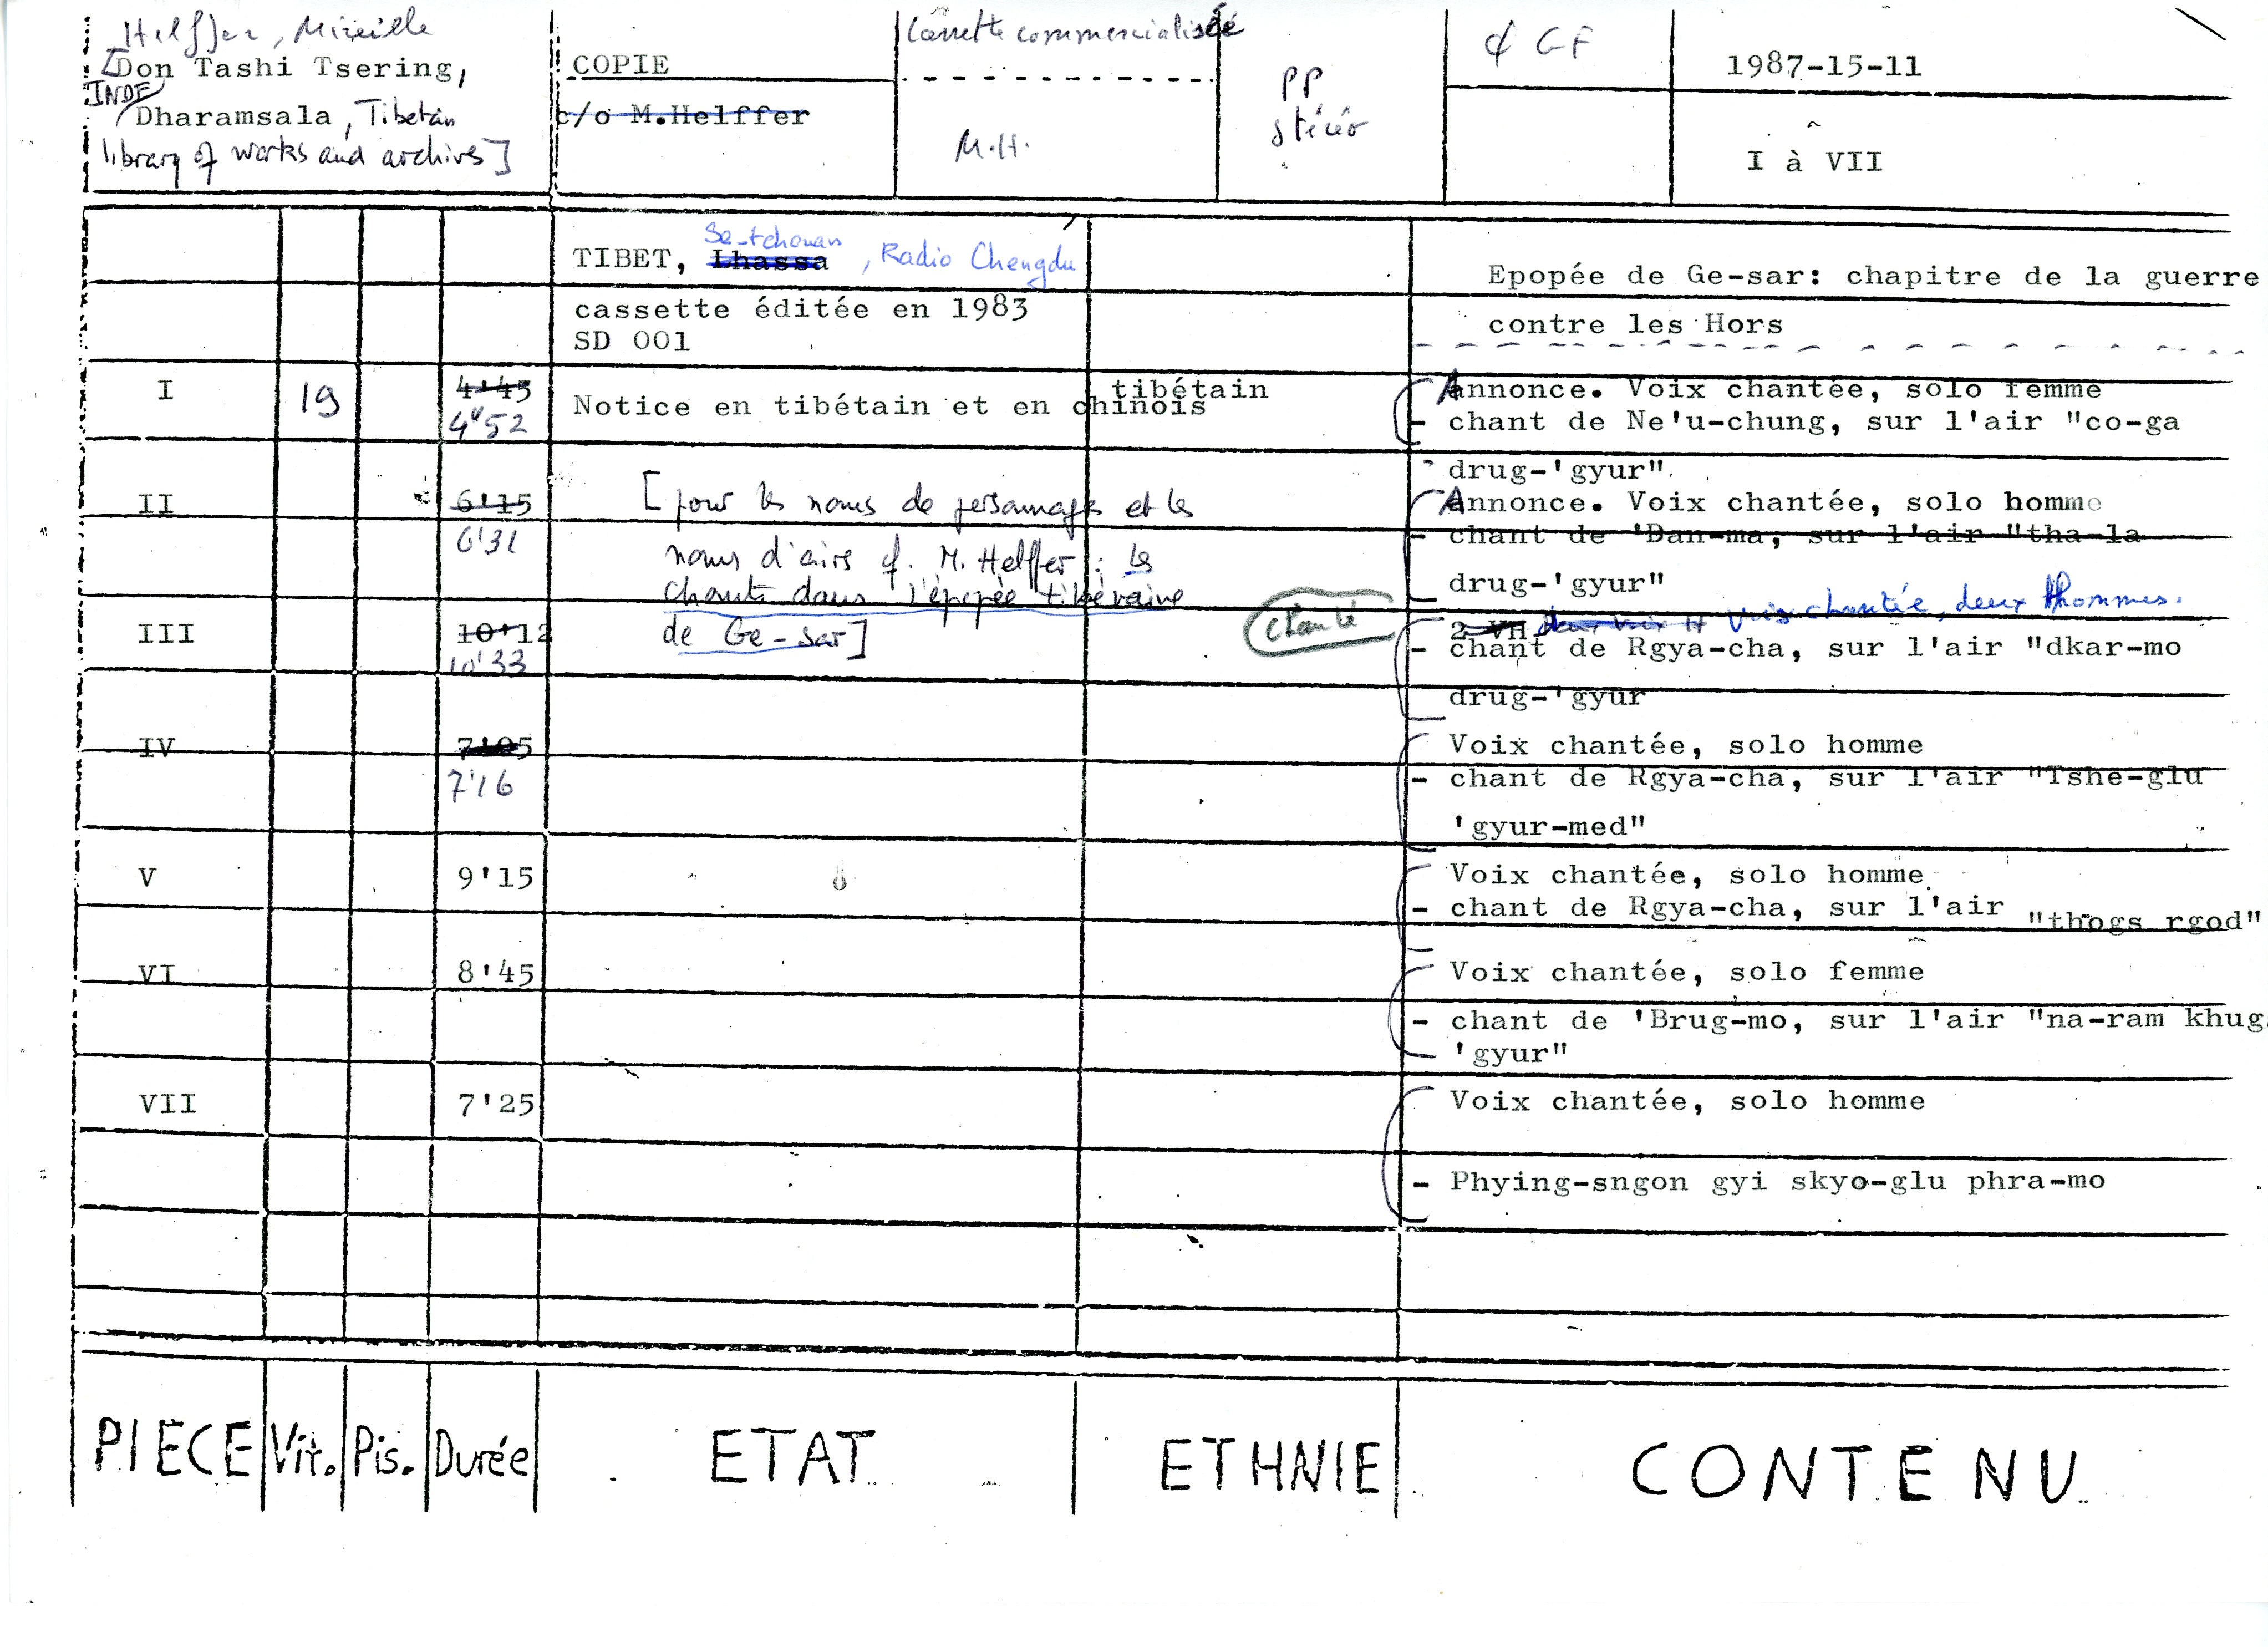 Helffer, Mireille
[Don Tashi Tsering,
INDE
Dharamsala, Tibetan
library of works and archives]
COPIE
c/o M.Helffer
Cassette commercialisée
M.H.
PP
stéréo
¢ CF
1987-15-11
I à VII
TIBET, Lhassa Se-tchouan, Radio Chengdu
cassette éditée en 1983
SD 001
Epopée de Ge-sar: chapitre de la guerre
contre les Hors
I 19 4'45
4'52
Notice en tibétain et en chinois
tibétain
Annonce. Voix chantée, solo femme
- chant de Ne'u-chung, sur l'air "co-ga
drug-'gyur".
II 6'15
6'31
[pour les noms de personnages et les
noms d'airs cf. M. Helffer : les
chants dans l'épopée tibétaine
de Ge-sar]
Annonce. Voix chantée, solo homme
- chant de 'Dan-ma, sur l'air "tha-la
drug-'gyur"
III 10'12
10'33
chanté
2 VH Voix chantée, deux hommes.
- chant de Rgya-cha, sur l'air "dkar-mo
drug-'gyur
IV 7'05
7'16
Voix chantée, solo homme
- chant de Rgya-cha, sur l'air "Tshe-glu
'gyur-med"
V 9'15
Voix chantée, solo homme
- chant de Rgya-cha, sur l'air "thogs rgod"
VI 8'45
Voix chantée, solo femme
- chant de 'Brug-mo, sur l'air "na-ram khug
'gyur"
VII 7'25
Voix chantée, solo homme
- Phying-sngon gyi skyo-glu phra-mo
PIECE Vit. Pis. Durée ETAT ETHNIE CONTENU